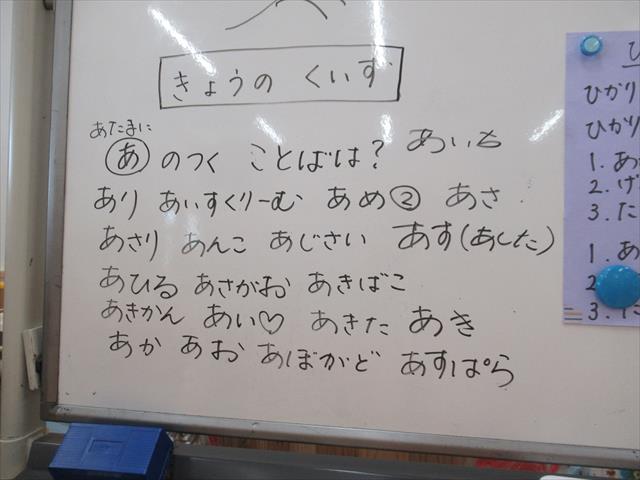 きょうの くいず
あたまに
あ のつく ことばは? あいち
あり あいすくりーむ あめ② あさ
あさり あんこ あじさい あす(あした)
あひる あさがお あきばこ
あきかん あい♡ あきた あき
あか あお あぼかど あすぱら
ひかり
ひかり
1. あ
2. げ
3. た
1. あ
2
3. だ